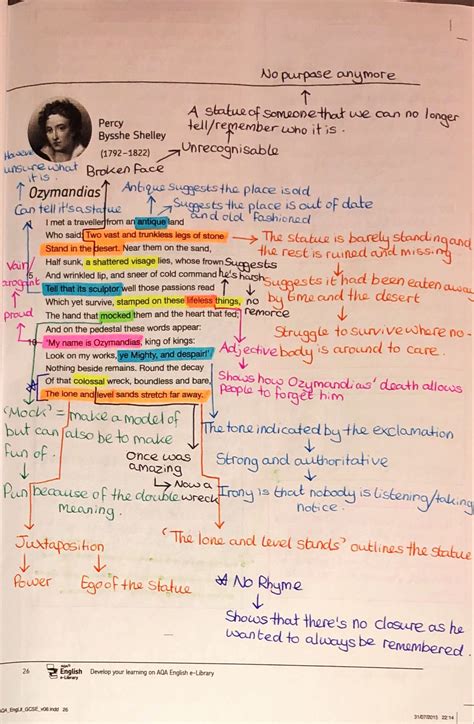 No purpose anymore
A statue of someone that we can no longer
tell/remember who it is.
Unrecognisable
Percy
Bysshe Shelley
(1792–1822)
However
unsure what
it is.
Broken Face
Ozymandias
Antique suggests the place is old
Can tell it's a statue
Suggests the place is out of date
and old fashioned
I met a traveller from an antique land
Who said: Two vast and trunkless legs of stone
Stand in the desert. Near them on the sand,
Half sunk, a shattered visage lies, whose frown
And wrinkled lip, and sneer of cold command
Tell that its sculptor well those passions read
Which yet survive, stamped on these lifeless things,
The hand that mocked them and the heart that fed;
And on the pedestal these words appear:
'My name is Ozymandias, king of kings:
Look on my works, ye Mighty, and despair!'
Nothing beside remains. Round the decay
Of that colossal wreck, boundless and bare,
The lone and level sands stretch far away.
5
10
Vain/
arrogant
proud
Suggests
he's harsh
no
remorce
The statue is barely standing and
the rest is ruined and missing
Suggests it had been eaten away
by time and the desert
Struggle to survive where no-
body is around to care.
Adjective
Shows how Ozymandias' death allows
people to forget him
'Mock' = make a model of
but can also be to make
fun of.
Pun because of the double
meaning.
Once was
amazing
Now a
wreck
The tone indicated by the exclamation
Strong and authoritative
Irony is that nobody is listening/taking
notice.
Juxtaposition
Power
Ego of the statue
'The lone and level stands' outlines the statue
* No Rhyme
Shows that there's no closure as he
wanted to always be remembered.
26
AQA
English
e-Library
Develop your learning on AQA English e-Library
AQA_EngLit_GCSE_v06.indd 26
31/07/2013 22:14